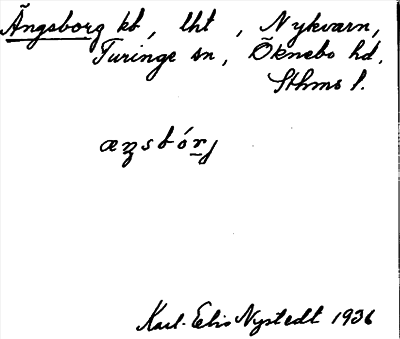 Ängsborg kb, lht, Nykvarn,
Turinge sn, Öknebo hd.
Sthms l.
æŋsbórj
Karl-Elis Nystedt 1936